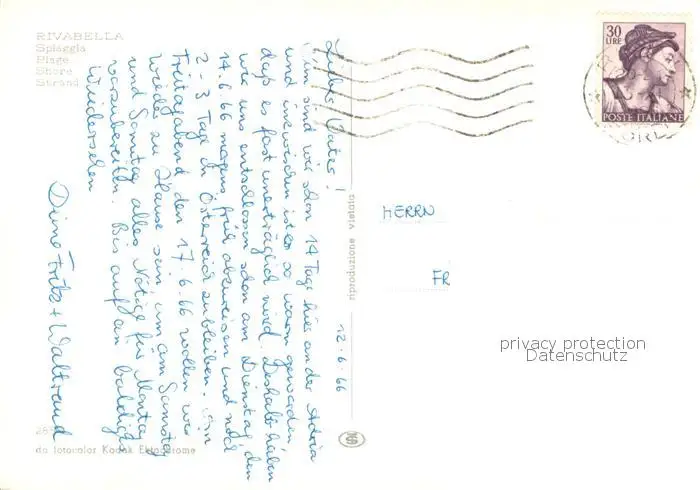 RIVABELLA
Spiaggia
Plage
Shore
Strand
12.6.66
Liebes Vater!
Nun sind wir schon 14 Tage hier an der Adria
und inzwischen ist es so warm geworden
daß es fast unerträglich wird. Deshalb haben
wir uns entschlossen schon am Dienstag, den
14.6.66 morgens früh abzureisen und noch
2-3 Tage in Österreich zu bleiben.
Freitagabend den 17.6.66 wollen wir
wieder zu Hause sein, um am Samstag
und Sonntag alles Nötige für Montag
vorzubereiten. Bis auf ein baldiges
Wiedersehen
Deine Fritz + Waltraud
riproduzione vietata
HERRN
FR
30
LIRE
POSTE ITALIANE
privacy protection
Datenschutz
28
da fotocolor Kodak Ektachrome